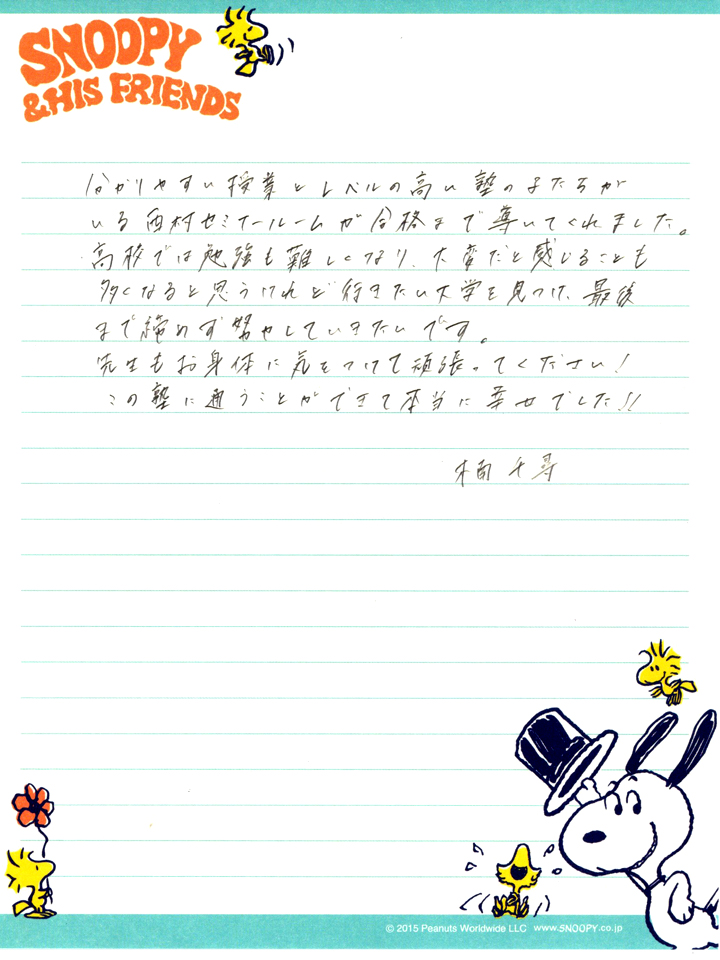 SNOOPY
& HIS FRIENDS
分かりやすい授業とレベルの高い塾の子たちが
いる西村セミナールームが合格まで導いてくれました。
高校では勉強も難しくなり、大変だと感じることも
多くなると思うけれど行きたい大学を見つけ、最後
まで諦めず努力していきたいです。
先生もお身体に気をつけて頑張ってください!
この塾に通うことができて本当に幸せでした!!
千尋
© 2015 Peanuts Worldwide LLC www.SNOOPY.co.jp